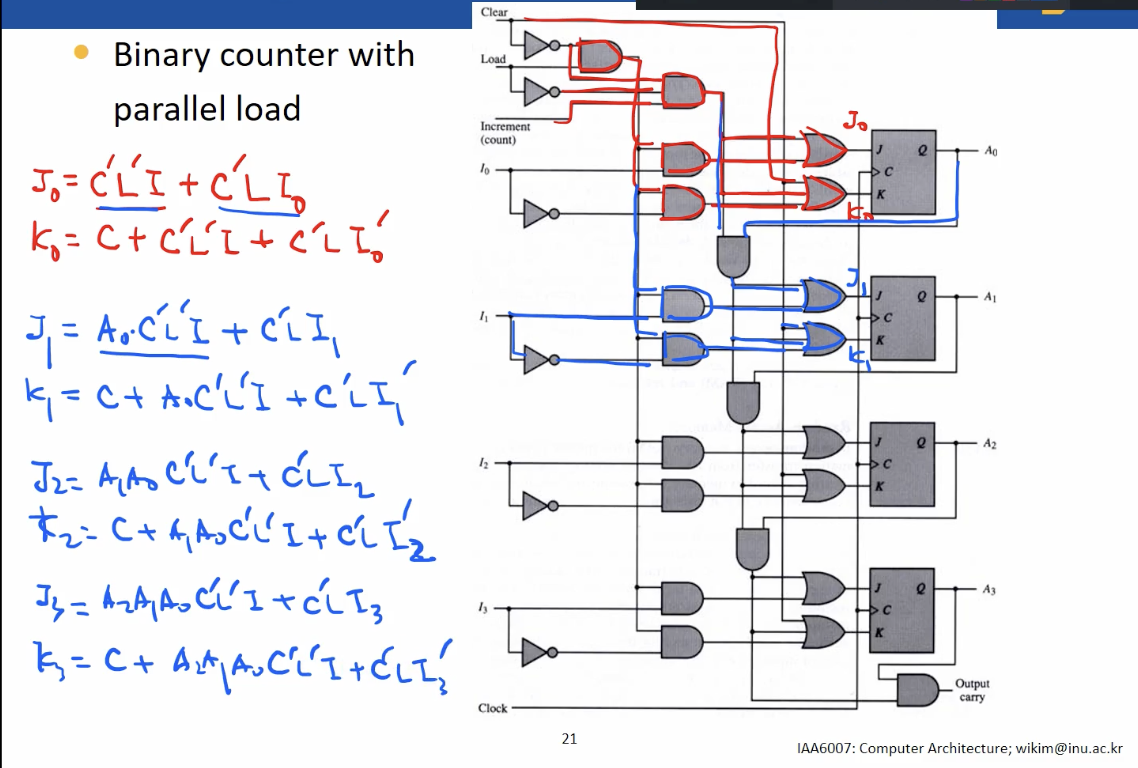 Binary counter with
parallel load
J₀ = C'L'I + C'L I₀
K₀ = C + C'L'I + C'L I₀'
J₁ = A₀·C'L'I + C'L I₁
K₁ = C + A₀C'L'I + C'L I₁'
J₂ = A₁A₀ C'L'I + C'L I₂
K₂ = C + A₁A₀C'L'I + C'L I₂'
J₃ = A₂A₁A₀ C'L'I + C'L I₃
K₃ = C + A₂A₁A₀ C'L'I + C'L I₃'
Clear
Load
Increment
(count)
J₀
J Q A₀
I₀
C
K
K₀
J₁
J Q A₁
I₁
C
K
K₁
J Q A₂
I₂
C
K
J Q A₃
I₃
C
K
Output
carry
Clock
21
IAA6007: Computer Architecture; wikim@inu.ac.kr